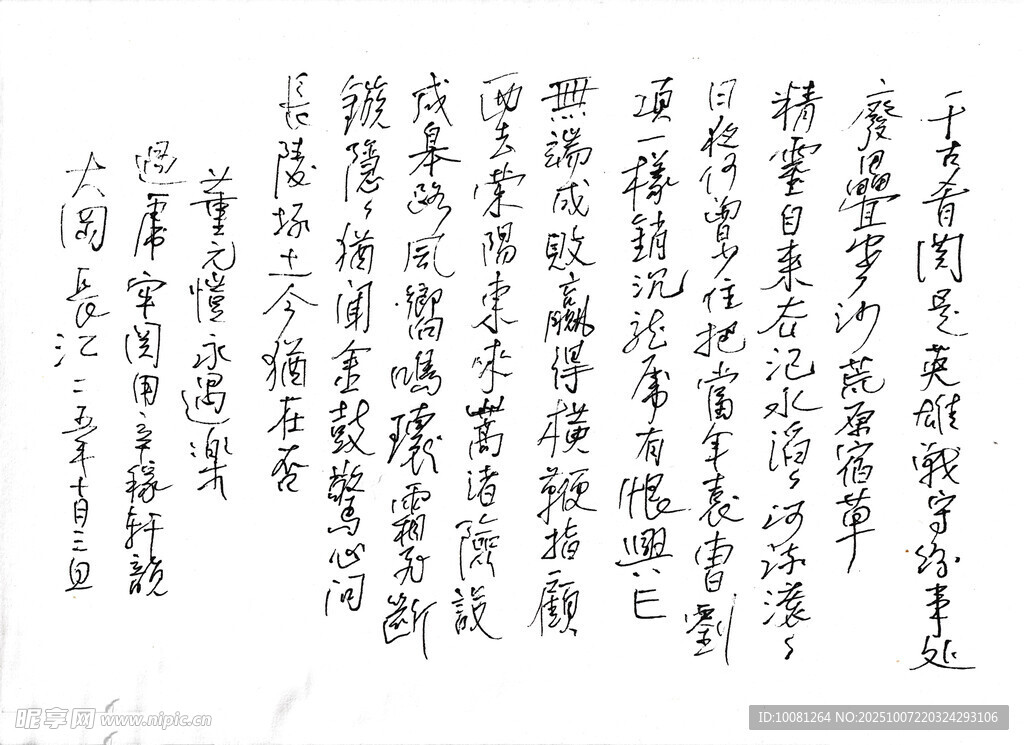 千古肴関是英雄戰守紛事处
廢壘虫沙荒原宿草
精靈自来在汜水滔々河流滾々
日夜何曾少住把當年袁曹劉
項一樣銷沉龍虎有恨興亡
無端成敗贏得橫鞭指顧
西去榮陽東來蒿渚險設
成皋路風響鳴環霜飛斷
鏃隱々猶闻金鼓驚心问
長陵抔土今猶在否
董元愷永遇樂
過虎牢関用辛稼軒韻
大岡長江二五年十月三日
昵享网 www.nipic.cn
ID:10081264 NO:20251007220324293106